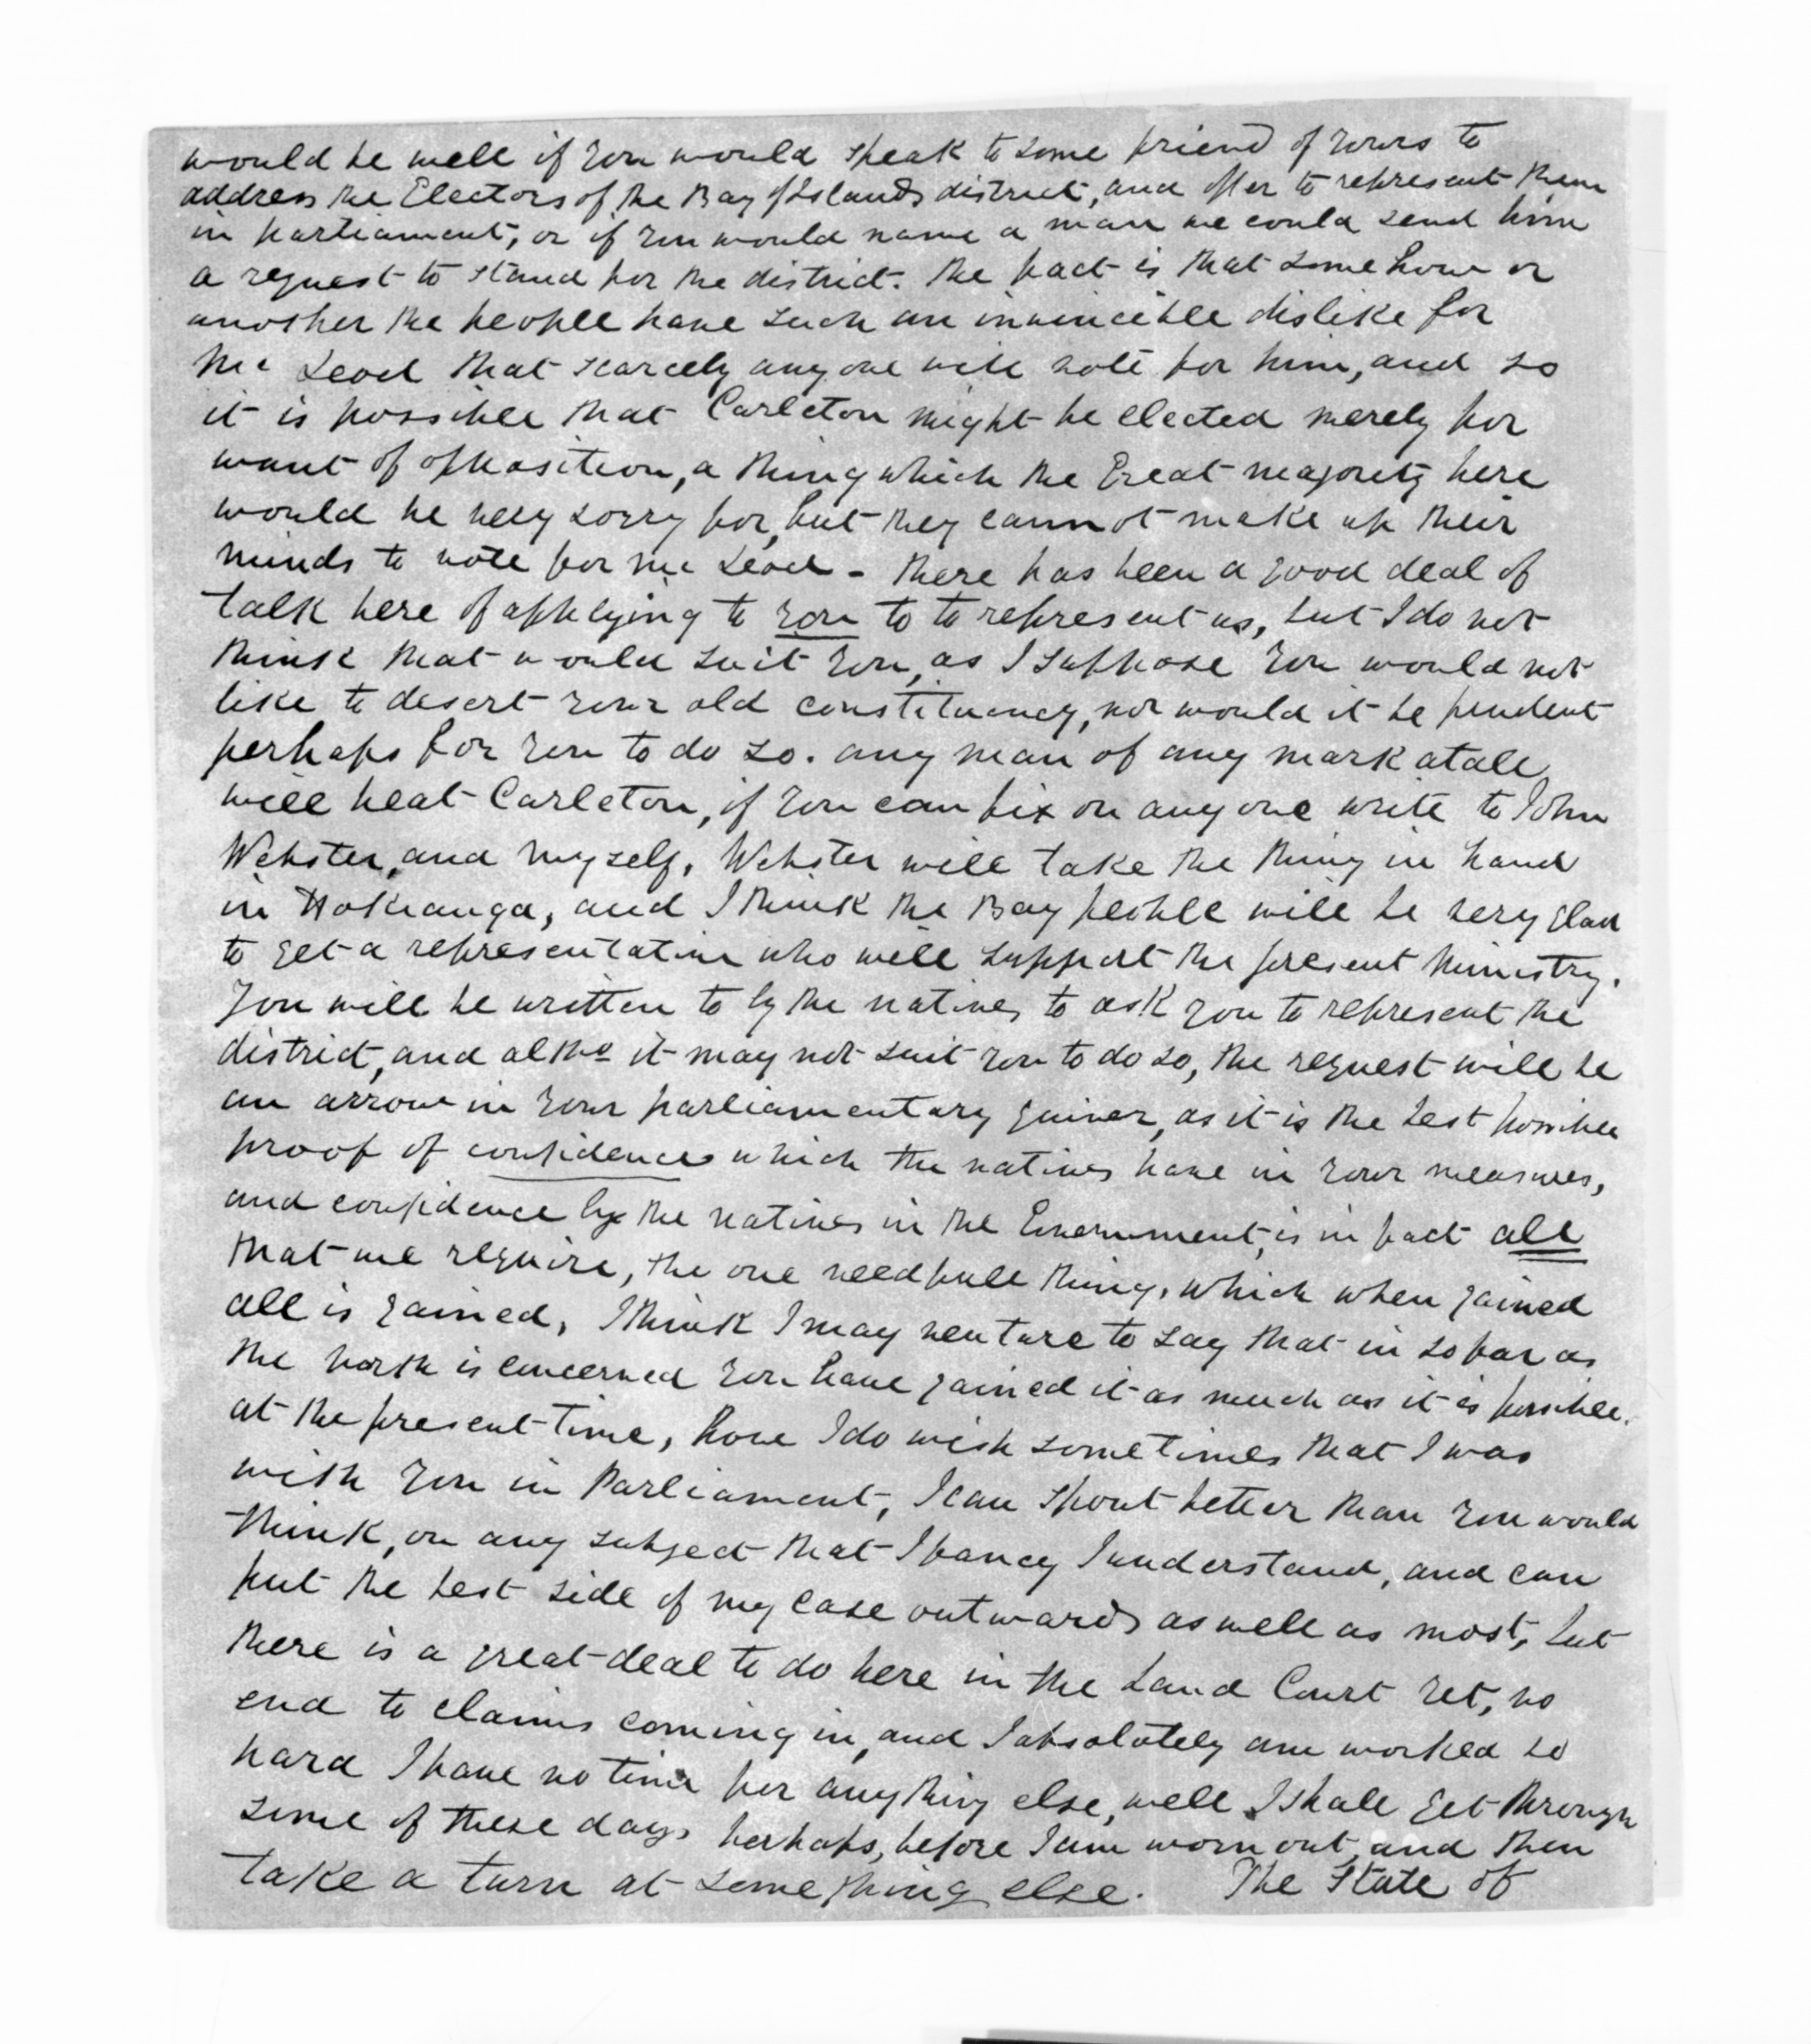 would be well if you would speak to some friend of yours to
address the Electors of the Bay of Islands district, and offer to represent them
in parliament, or if you would name a man we could send him
a request to stand for the district. The fact is that some how or
another the people have such an invincible dislike for
Mc Leod that scarcely any one will vote for him, and so
it is possible that Carleton might be elected merely for
want of opposition, a thing which the Great majority here
would be very sorry for, but they cannot make up their
minds to vote for Mc Leod - There has been a good deal of
talk here of applying to you to to represent us, but I do not
think that would suit you, as I suppose you would not
like to desert your old constituency, nor would it be prudent
perhaps for you to do so. any man of any mark atall
will beat Carleton, if you can fix on any one write to John
Webster, and myself, Webster will take the thing in hand
in Hokianga, and I think the Bay people will be very glad
to get a representative who will support the present Ministry.
You will be written to by the natives to ask you to represent the
district, and altho it may not suit you to do so, the request will be
an arrow in your parliamentary quiver, as it is the best possible
proof of confidence which the natives have in your measures,
and confidence by the natives in the Government, is in fact all
that we require, the one needfull thing, which when gained
all is gained, I think I may venture to say that in so far as
the North is concerned you have gained it as much as it is possible
at the present time, how I do wish sometimes that I was
with you in Parliament, I can spout better than you would
think, on any subject that I fancy I understand, and can
put the best side of my case outwards as well as most, but
there is a great deal to do here in the Land Court yet, no
end to claims coming in, and I absolutely am worked so
hard I have no time for anything else, well I shall get through
some of these days perhaps, before I am worn out, and then
take a turn at something else. The State of